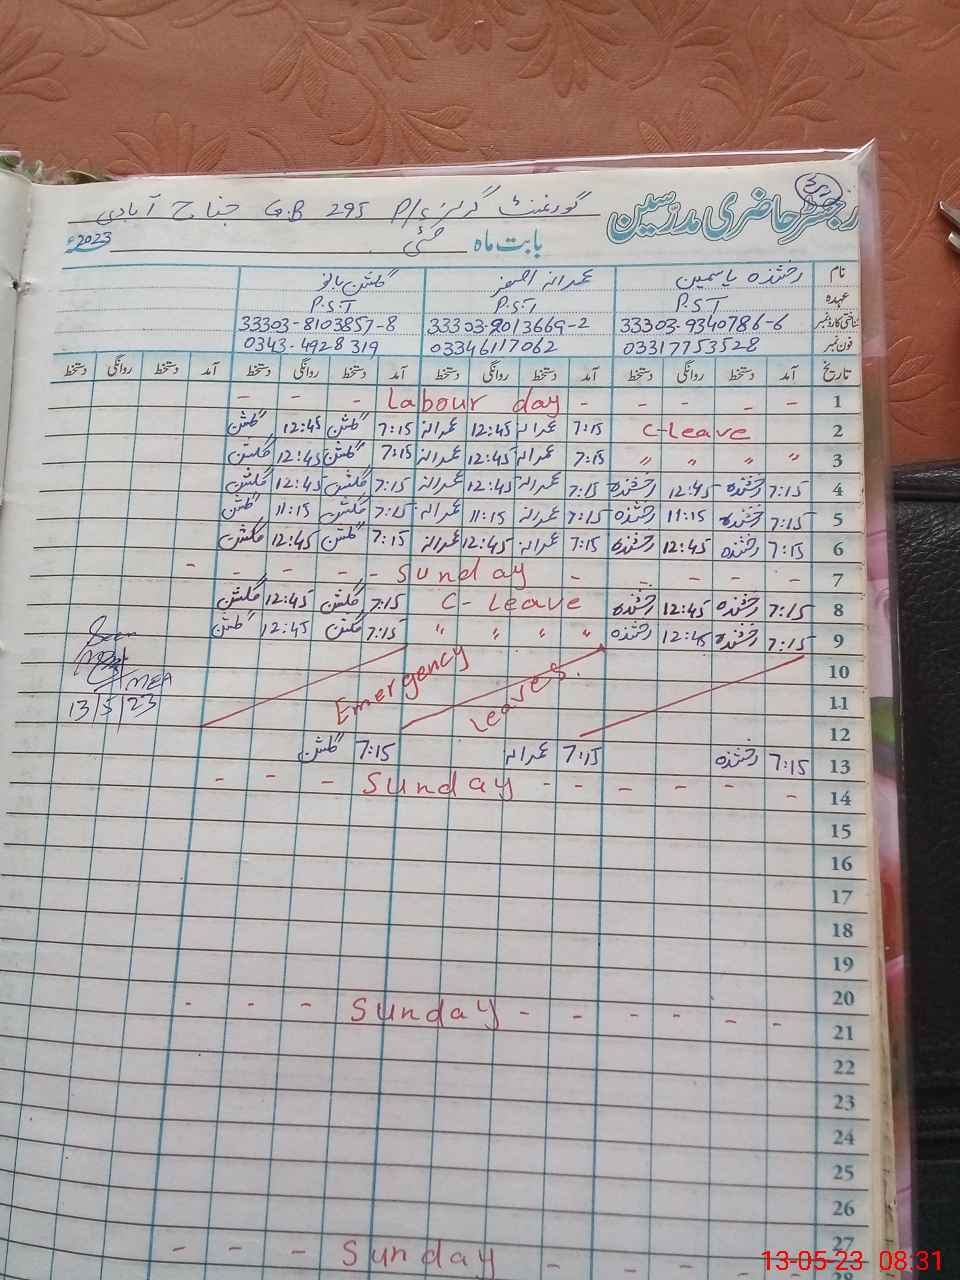 رجسٹر حاضری مدرسین گورنمنٹ گرلز P/S 295 G.B جناح آبادی
بابت ماہ مئی 2023ء
نام رخشندہ یاسمین عمرانہ اصغر گلشن بانو
عہدہ P.S.T P.S.T P.S.T
شناختی کارڈ نمبر 33303-9340786-6 33303-8013669-2 33303-8103857-8
فون نمبر 03317753528 03346117062 0343-4928319
تاریخ آمد دستخط روانگی دستخط آمد دستخط روانگی دستخط آمد دستخط روانگی دستخط آمد دستخط روانگی دستخط
1 - - - - - Labour day - - -
2 C-leave 7:15 عمرانہ 12:45 عمرانہ 7:15 گلشن 12:45 گلشن
3 " " " " 7:15 عمرانہ 12:45 عمرانہ 7:15 گلشن 12:45 گلشن
4 7:15 رخشندہ 12:45 رخشندہ 7:15 عمرانہ 12:45 عمرانہ 7:15 گلشن 12:45 گلشن
5 7:15 رخشندہ 11:15 رخشندہ 7:15 عمرانہ 11:15 عمرانہ 7:15 گلشن 11:15 گلشن
6 7:15 رخشندہ 12:45 رخشندہ 7:15 عمرانہ 12:45 عمرانہ 7:15 گلشن 12:45 گلشن
7 - - - - - Sunday - - - - -
8 7:15 رخشندہ 12:45 رخشندہ C-Leave 7:15 گلشن 12:45 گلشن
9 7:15 رخشندہ 12:45 رخشندہ " " " " 7:15 گلشن 12:45 گلشن
10 Emergency
11 Leaves. MEA
12 13/5/23
13 7:15 رخشندہ 7:15 عمرانہ 7:15 گلشن
14 - - - - - Sunday - - -
15
16
17
18
19
20
21 - - - - - - Sunday - - -
22
23
24
25
26
27
28 Sunday - - -
13-05-23 08:31